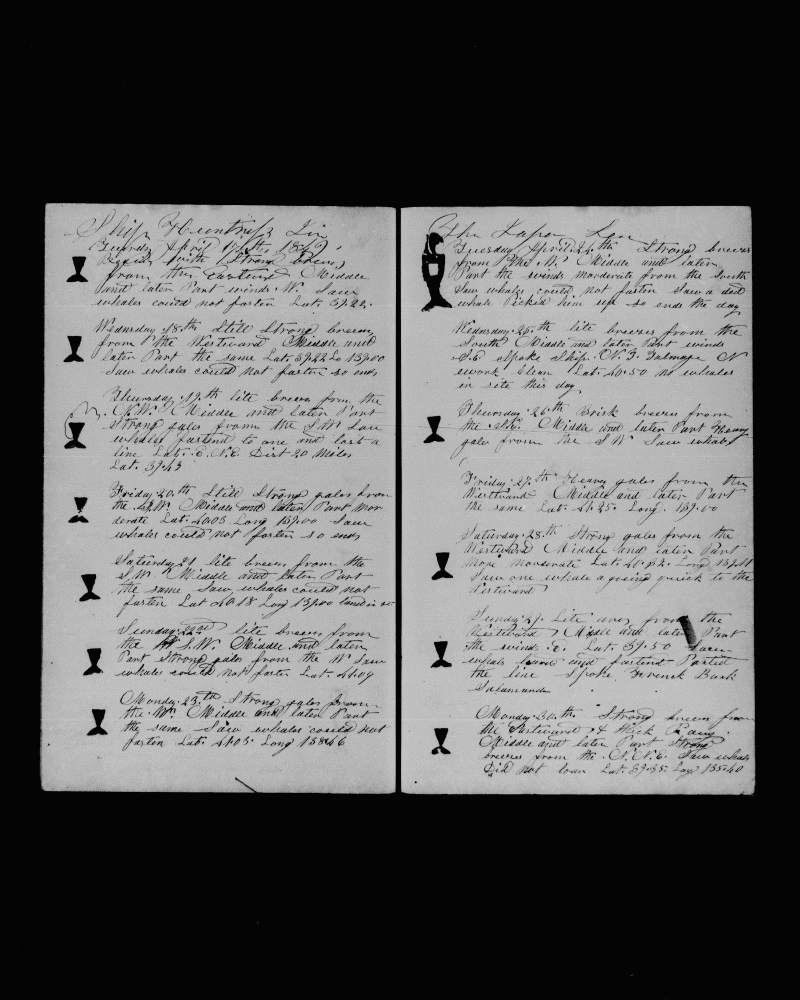 Ship Huntress In
Tuesday April 17th 1849
Begins with Strong breeses
from the Eastward Middle
and later Part winds W. Saw
whales could not fasten Lat. 39.20.
Wedursday 18th Still Strong breeses
from the Westward Middle and
later Part the same Lat 39.22 Lo 139.00
Saw whales could not fasten so ends
Thursday 19th lite breeses from the
N.W. Middle and later Part
Strong gales from the S.W. Saw
whales fastend to one and lost a
line Dist 20 miles
Lat. 39.43
Friday 20th Still Strong gales from
the S.W. Middle and later Part mor
derate Lat. 40.05 Long 139.00 Saw
whales could not fasten so ends
Saturday 21 lite breeses from the
S.W. Middle and later Part
the same Saw whales could not
fasten Lat 40.18 Long 139.00
Sunday 22nd lite breeses from
the S.W. Middle and later
Part Strong gales from the W. Saw
whales could not fasten Lat. 41.09
Monday 23th Strong gales from
the W. Middle and later Part
the same Saw whales could not
fasten Lat. 41.05 Long 138.46
The Japan Sea
Tuesday April 24th Strong breeses
from the N. Middle and later
Part the winds morderate from the South
Saw whales could not fasten Saw a ded
whale Picked him up so ends the day
Wedursday 25th lite breeses from the
South Middle and later Part winds
S.E. Spoke Ship N.P. Talmage N
ework Clean Lat. 40.50 no whales
in site this day
Thursday 26th Brisk breeses from
the S.E. Middle and later Part Heavy
gales from the S.W. Saw whales
Friday 27th Heavey gales from the
Westward Middle and later Part
the same Lat. 41.25. Long. 139.00
Saturday 28th Strong gales from the
Westward Middle and later Part
more morderate Lat. Long
Saw one whale a going quick to the
Westward
Sunday 29 Lite aires from the
Westward Middle and later Part
the winds E. Lat. 39.50 Saw
whales and fastend Parted
the line Spoke French Bark
Salamander
Monday 30th Strong breeses from
the Eastward & thick Rainy
Middle and later Part Strong
breeses from the N.N.E. Saw whales
Did not lower Lat. 39.35. Long 135.40